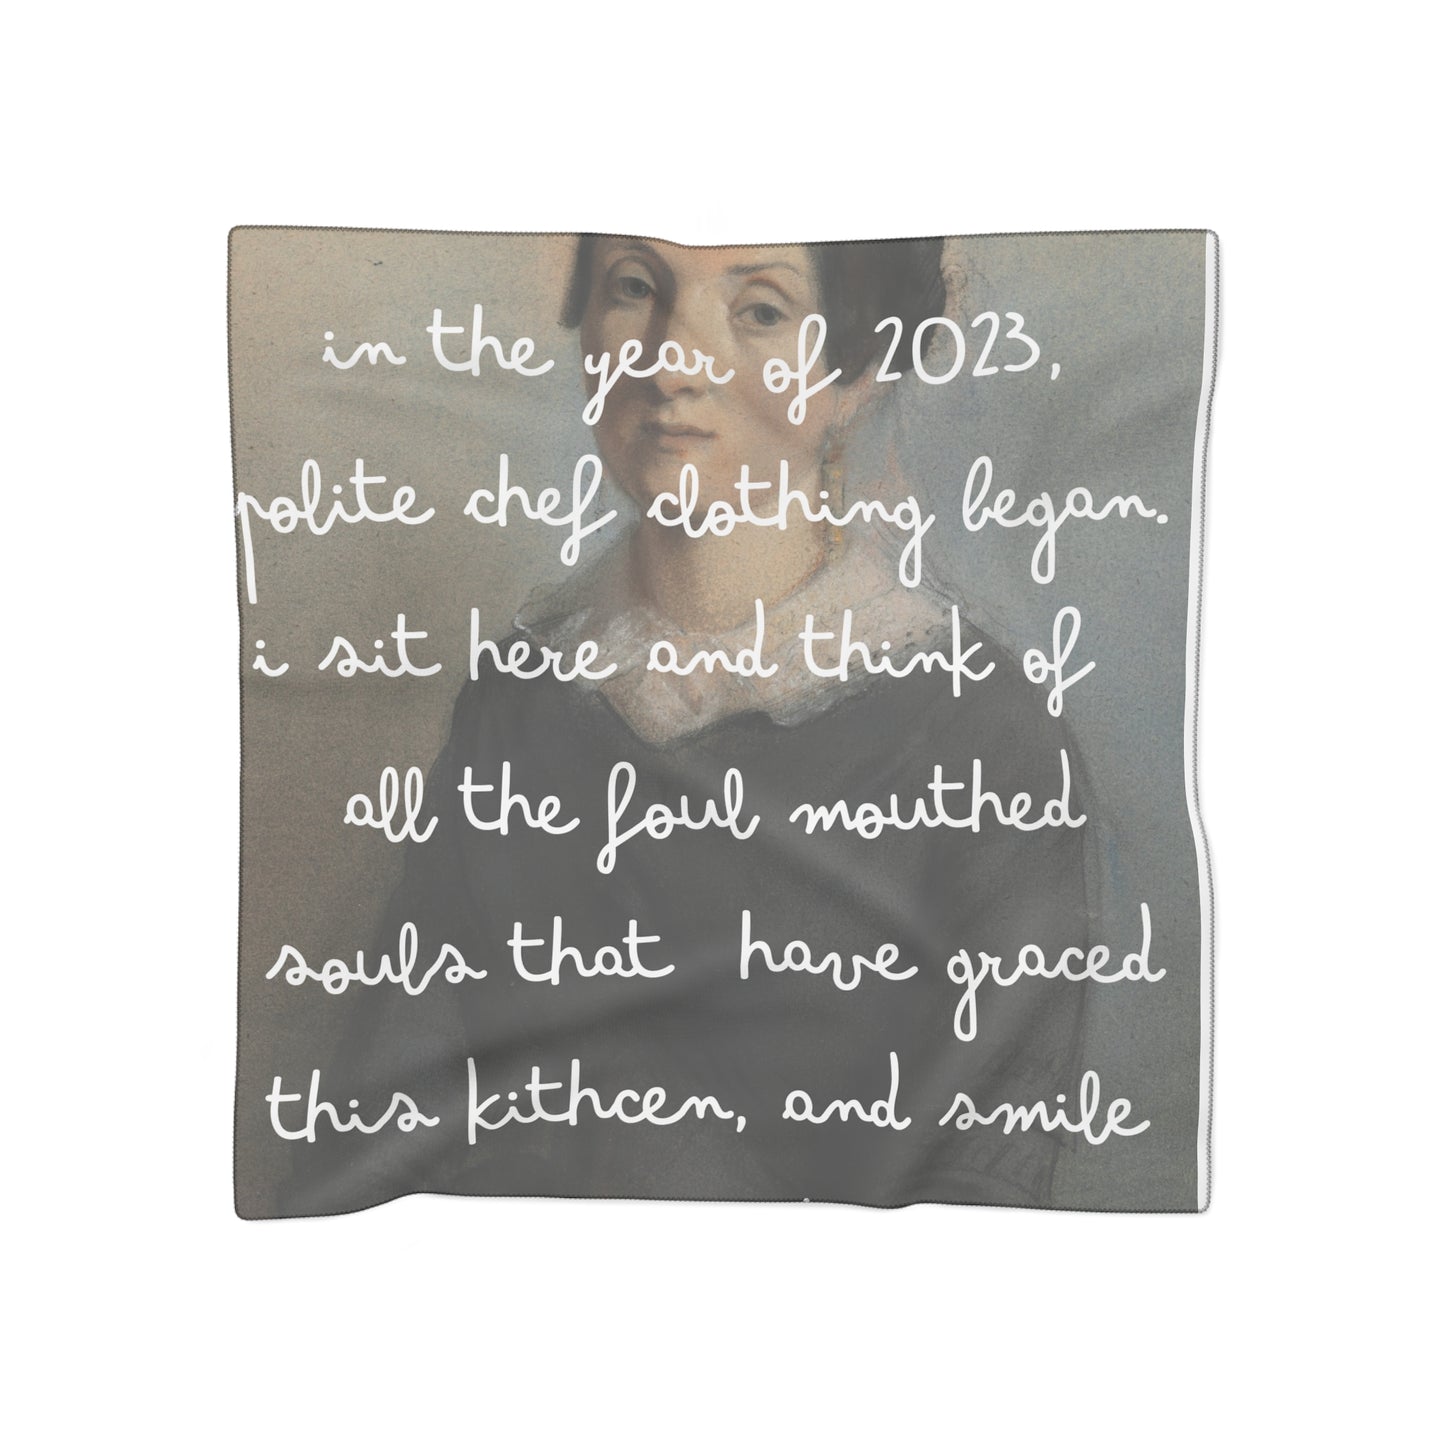 in the year of 2023,
polite chef clothing began.
i sit here and think of
all the foul mouthed
souls that have graced
this kithcen, and smile